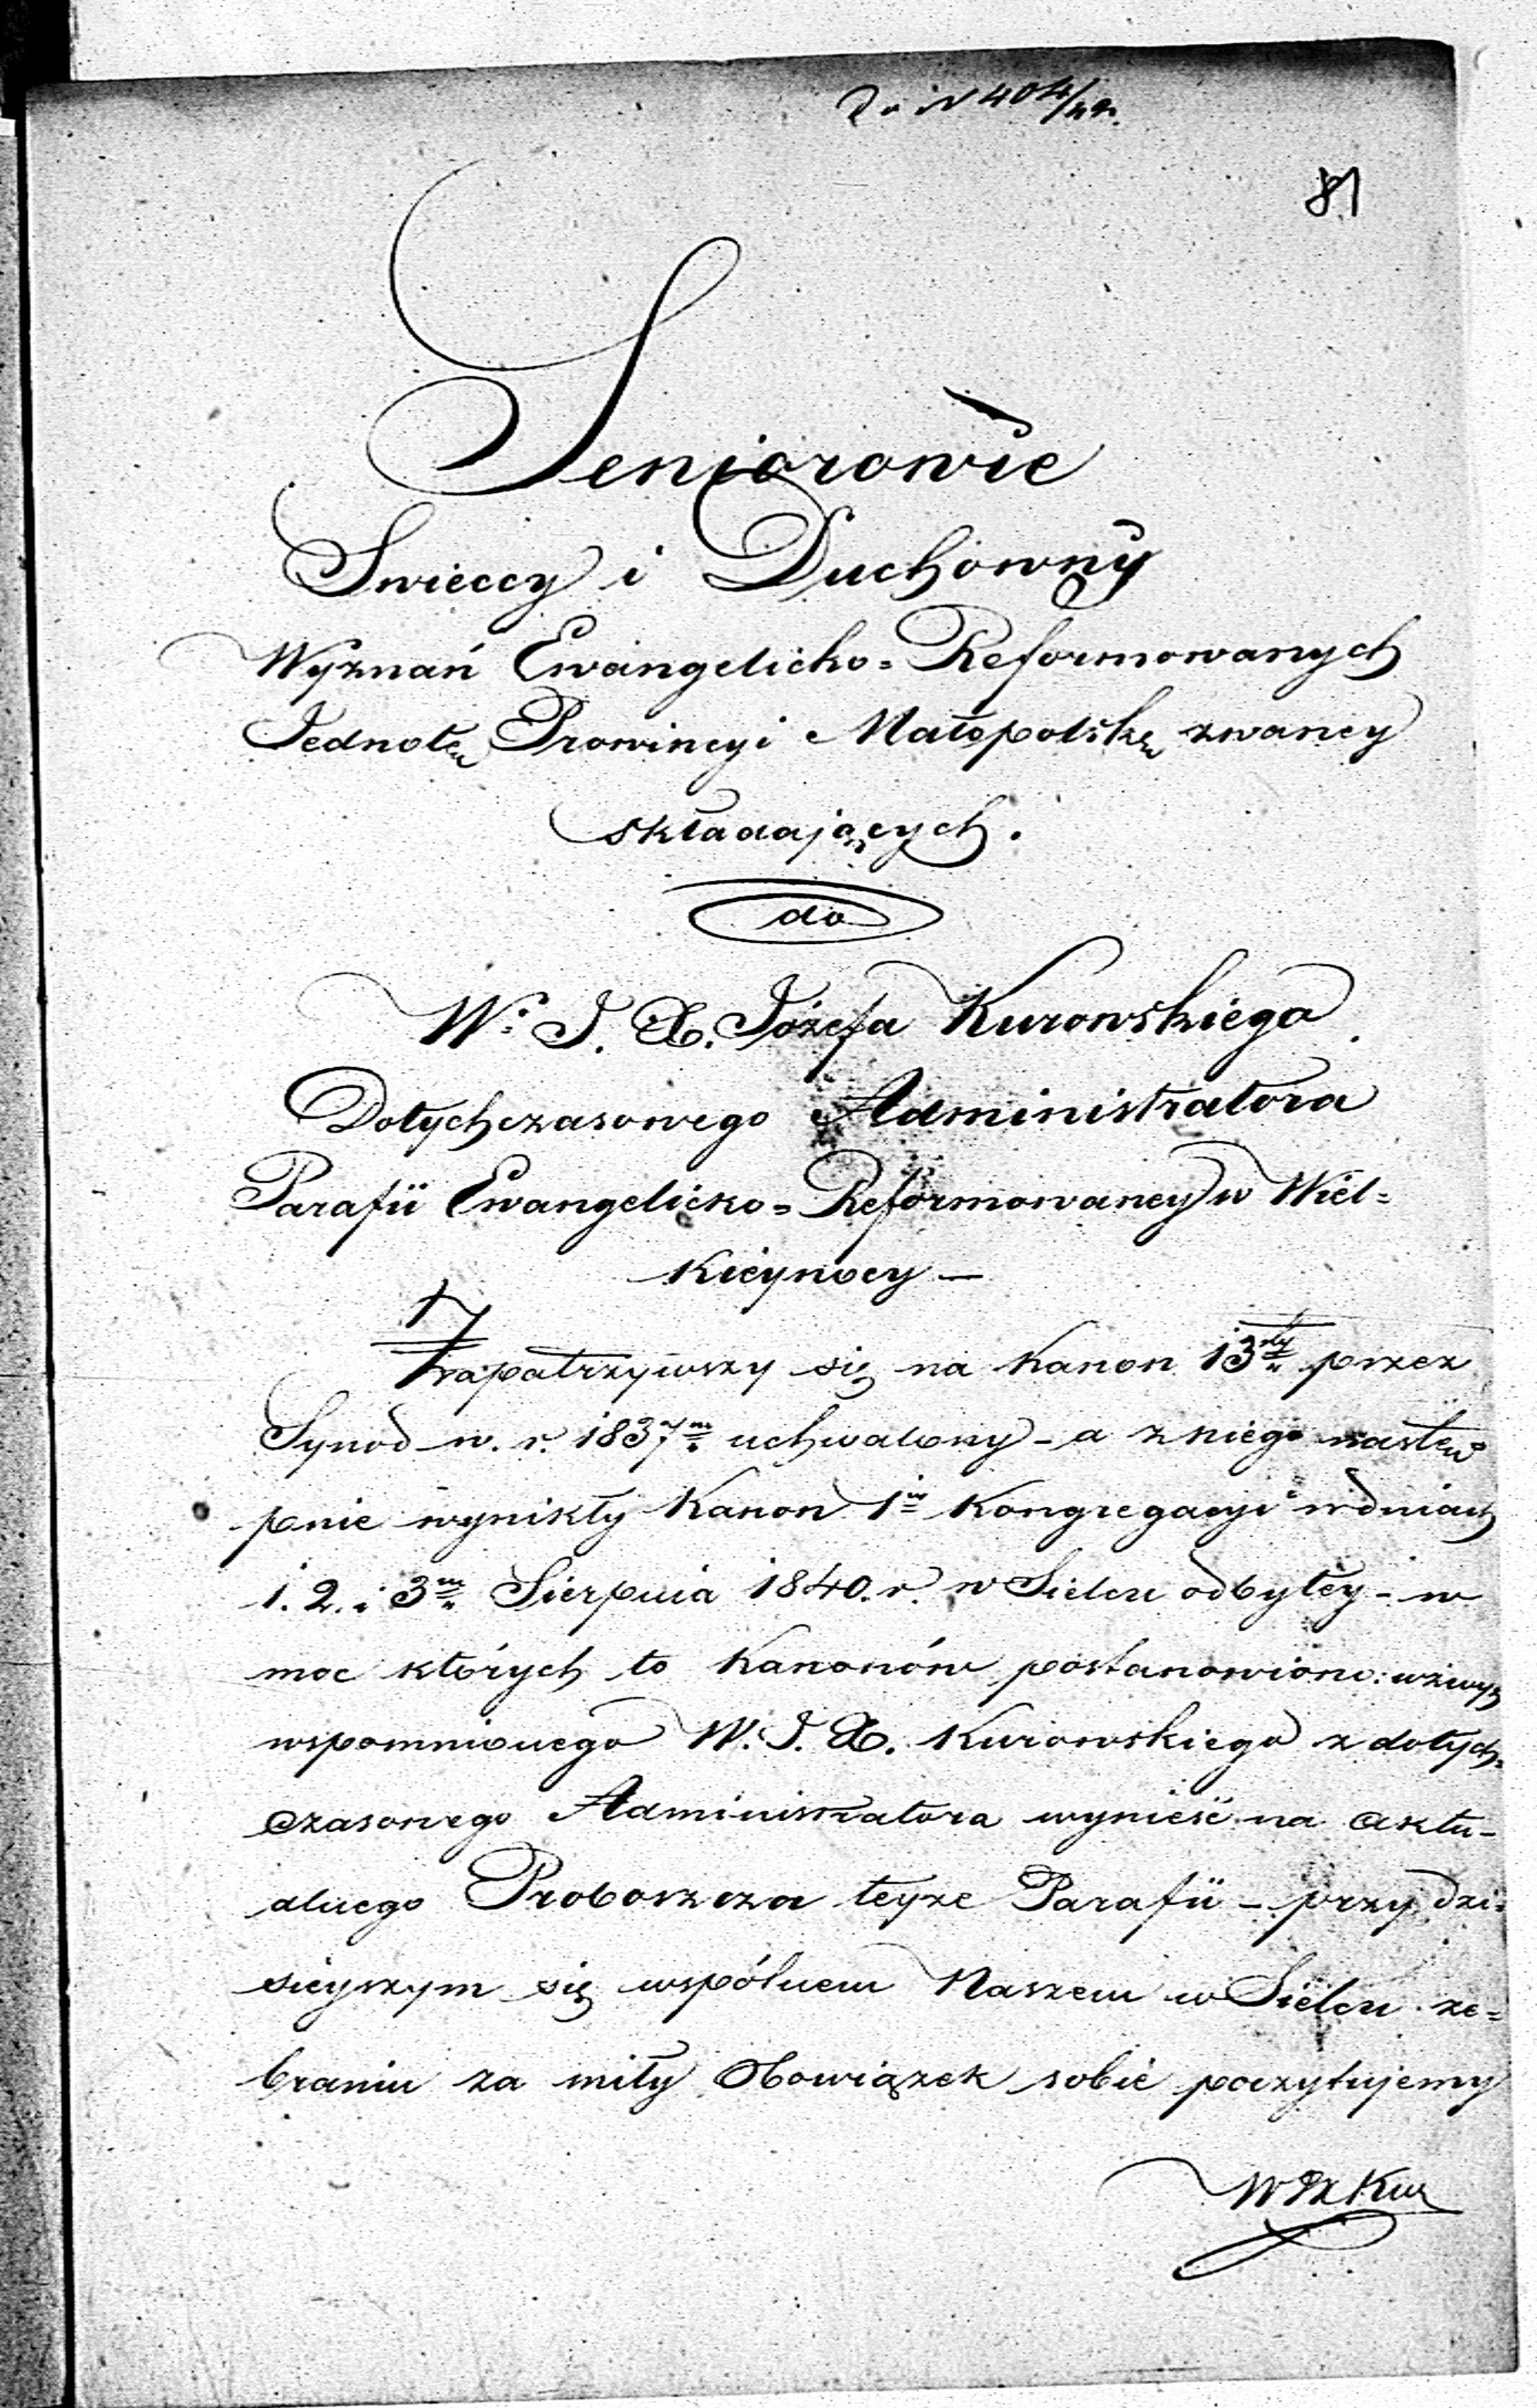 Do N 404/42.
81
Seniorowie
Swieccy i Duchowny
Wyznań Ewangelicko=Reformowanych
Jednotę Prowincyi Małopolskę zwaney
składających.
do
W. J. X. Józefa Kurowskiego
Dotychczasowego Administratora
Parafii Ewangelicko=Reformowaney w Wiel=
kieynocy —
Zapatrzywszy się na Kanon 13ty przez
Synod w. r. 1837m uchwalony - a z niego nastę
pnie wynikły Kanon 1m Kongregacyi w dniach
1. 2. i 3m Sierpnia 1840. r. w Sielcu odbytey - w
moc których to Kanonów postanowiono:
wspomnionego W. J. X. Kurowskiego z dotych=
czasowego Administratora wynieść na aktu-
alnego Proboszcza teyże Parafii - przy dzi=
sieyszym się wspólnem Naszem w Sielcu ze=
braniu za miły Obowiązek sobie poczytujemy